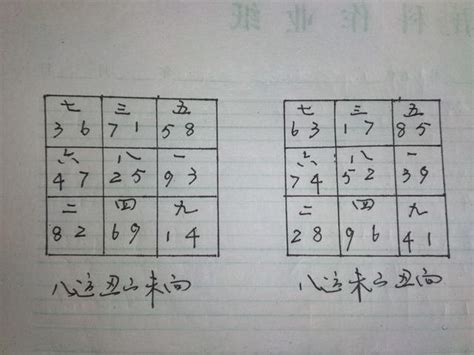 科作业纸
七 三 五 七 三 五
3 6 7 1 5 8 6 3 1 7 8 5
六 八 一 六 八 一
4 7 2 5 9 3 7 4 5 2 3 9
二 四 九 二 四 九
8 2 6 9 1 4 2 8 9 6 4 1
八运丑山未向 八运未山丑向